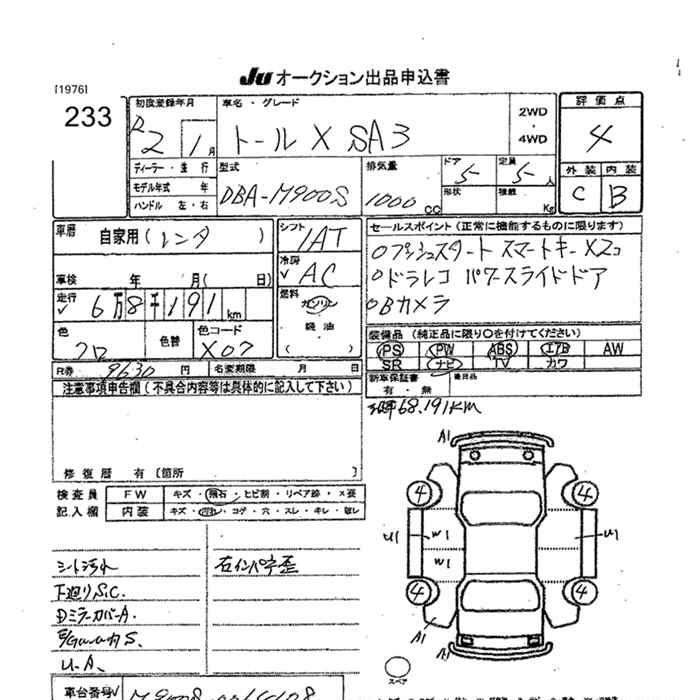 JU オークション出品申込書
[1976]
233
初度登録年月
R2 1月
車名・グレード
トール X SA3
2WD
・
4WD
評価点
4
ディーラー・並行
モデル年式 年
ハンドル 左・右
型式
DBA-M900S
排気量
1000 CC
ドア
5
定員
5人
形状
積載
Kg
外装 内装
C B
車歴
自家用(レンタ )
シフト
IAT
セールスポイント(正常に機能するものに限ります)
○プッシュスタート スマートキーX2コ
○ドラレコ パワースライドドア
○Bカメラ
車検 年 月( 日)
冷房
✓ AC
走行
✓ 6万8千191 km
燃料
ガソリン
軽油
( )
色
クロ
色替
色コード
X07
装備品(純正品に限り○を付けてください)
PS PW ABS エアB AW
SR ナビ TV カワ
R券 9630 円
名変期限 月 日
新車保証書
有・無
後日品
注意事項申告欄(不具合内容等は具体的に記入して下さい)
68.191KM
修復歴 有[箇所 ]
検査員
記入欄
FW キズ・飛石・ヒビ割・リペア跡・X要
内装
A1
4 4
U1 W1 U1
W1
4 4
A1
A1
スペア
シート汚れ
下廻りS.C.
Dミラーカバー A.
U.A.
車台番号